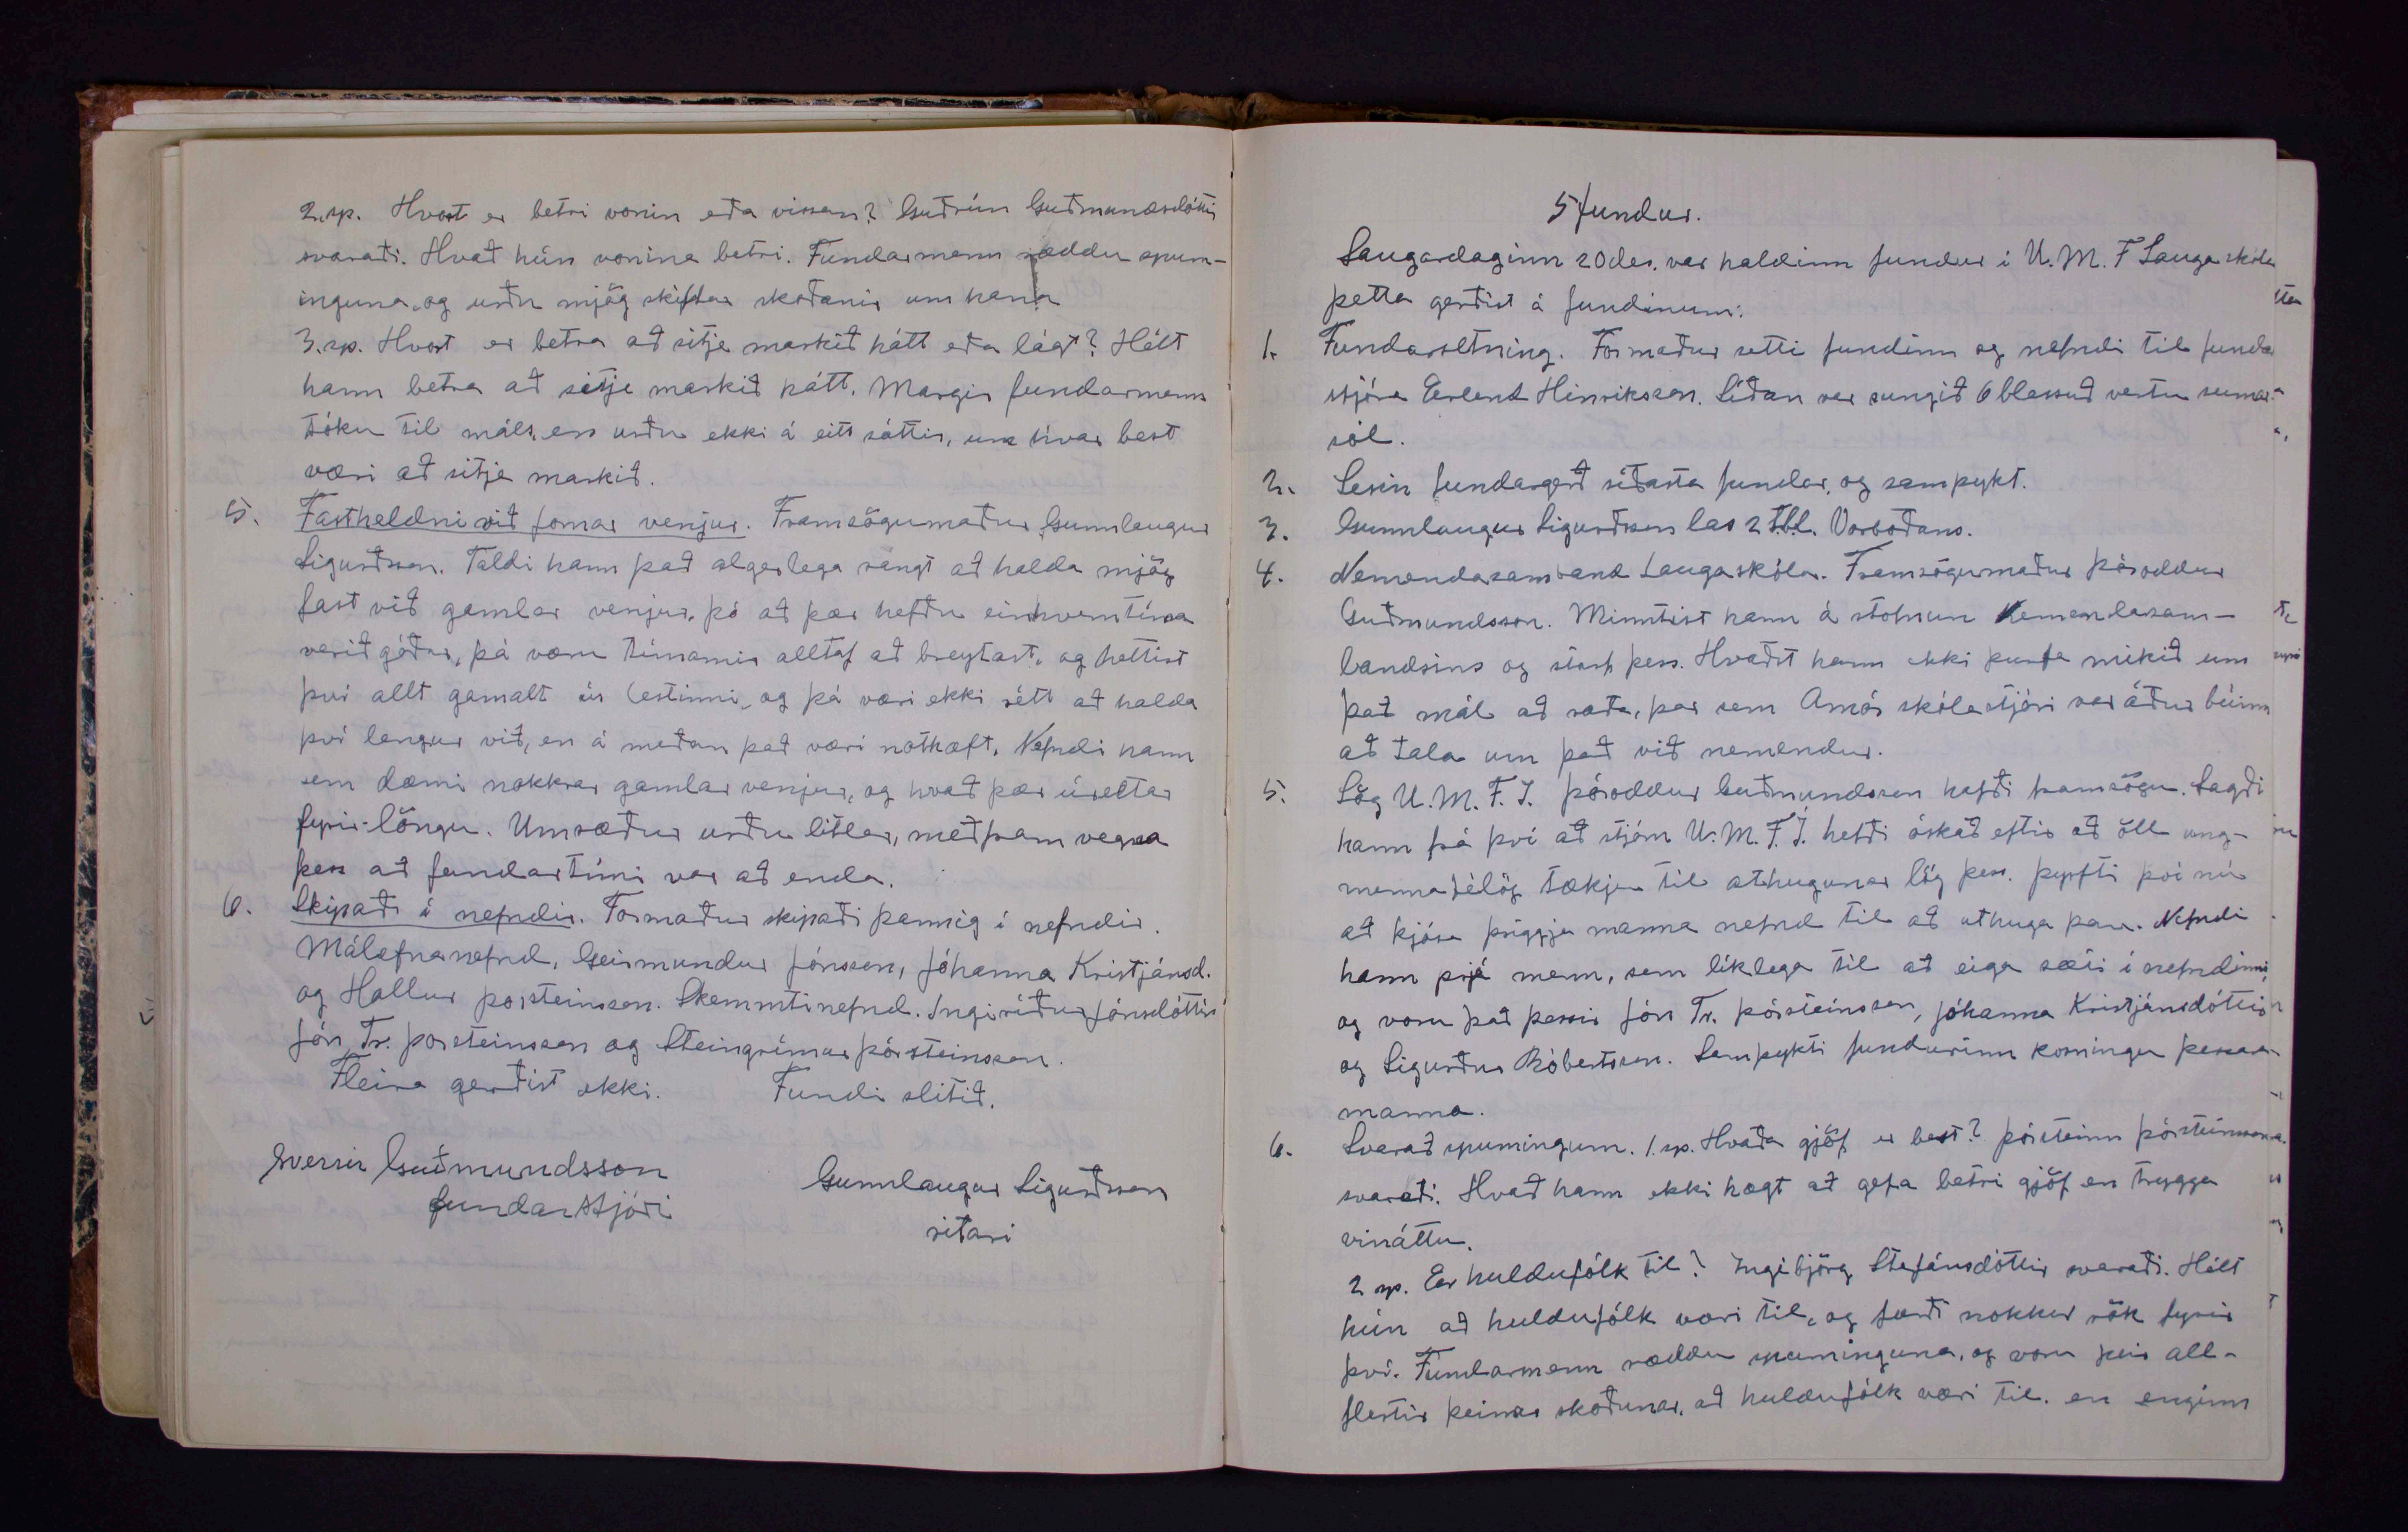 2. sp. Hvort er betri vonin eða vissan? Guðrún Guðmundsdóttir
svaraði. Hvað hún vonina betri. Fundarmenn ræddu spurn-
inguna, og urðu mjög skiftar skoðanir um hana
3. sp. Hvort er betra að setja markið hátt eða lágt? Hélt
hann betra að setja markið hátt. Margir fundarmenn
tóku til máls, en urðu ekki á eitt sáttir, um hvar best
væri að setja markið.
5. Fastheldni við fornar venjur. Framsögumaður Gunnlaugur
Sigurðsson. Taldi hann það algerlega rangt að halda mjög
fast við gamlar venjur, þó að þær hefðu einhverntíma
verið góðar, þá væru tímarnir alltaf að breytast, og hettist
því allt gamalt úr lestinni, og þá væri ekki rétt að halda
því lengur við, en á meðan það væri nothæft. Nefndi hann
sem dæmi nokkrar gamlar venjur, og hvað þær úreltar
fyrir löngu. Umræður urðu litlar, meðfram vegna
þess að fundartími var að enda.
6. Skipað í nefndir. Formaður skipaði þannig í nefndir.
Málefnanefnd, Geirmundur Jónsson, Jóhanna Kristjánsd.
og Hallur Þorsteinsson. Skemmtinefnd. Ingiríður Jónsdóttir
Jón Tr. Þorsteinsson og Steingrímur Þórsteinsson.
Fleira gerðist ekki. Fundi slitið.
Sverrir Guðmundsson
fundarstjóri
Gunnlaugur Sigurðsson
ritari
5 fundur.
Laugardaginn 20 des. var haldinn fundur í U. M. F Laugaskóla
þetta gerðist á fundinum:
1. Fundarsetning. Formaður setti fundinn og nefndi til funda
stjóra Erlend Hinriksson. Síðan var sungið Ó blessuð vertu sumar-
sól.
2. Lesin fundargerð síðasta fundar, og samþykt.
3. Gunnlaugur Sigurðsson las 2 tbl. Vorboðans.
4. Nemendasamband Laugaskóla. Framsögumaður Þóroddur
Guðmundsson. Minntist hann á stofnun Nemendasam-
bandsins og starf þess. Hvaðst hann ekki þurfa mikið um
það mál að ræða, þar sem Arnór skólastjóri var áður búinn
að tala um það við nemendur.
5. Lög U. M. F. Í. Þóroddur Guðmundsson hafði framsögu. Sagði
hann frá því að stjórn U. M. F. Í. hefði óskað eftir að öll ung-
mennafélög tækju til athugunar lög þess. Þyrfti því nú
að kjósa þriggja manna nefnd til að athuga þau. Nefndi
hann þrjá menn, sem líklega til að eiga sæti í nefndinni,
og voru það þessir Jón Tr. Þórsteinsson, Jóhanna Kristjánsdóttir
og Sigurður Róbertsson. Samþykti fundurinn kosningu þessara
manna.
6. Svarað spurningum. 1. sp. Hvaða gjöf er best? Þórsteinn Þórsteinsson
svaraði. Hvað hann ekki hægt að gefa betri gjöf en trygga
vináttu.
2 sp. Er huldufólk til? Ingibjörg Stefánsdóttir svaraði. Hélt
hún að huldufólk væri til, og færði nokkur rök fyrir
því. Fundarmenn ræddu spurninguna, og voru þeir all-
flestir þeirrar skoðunar, að huldufólk væri til. en enginn